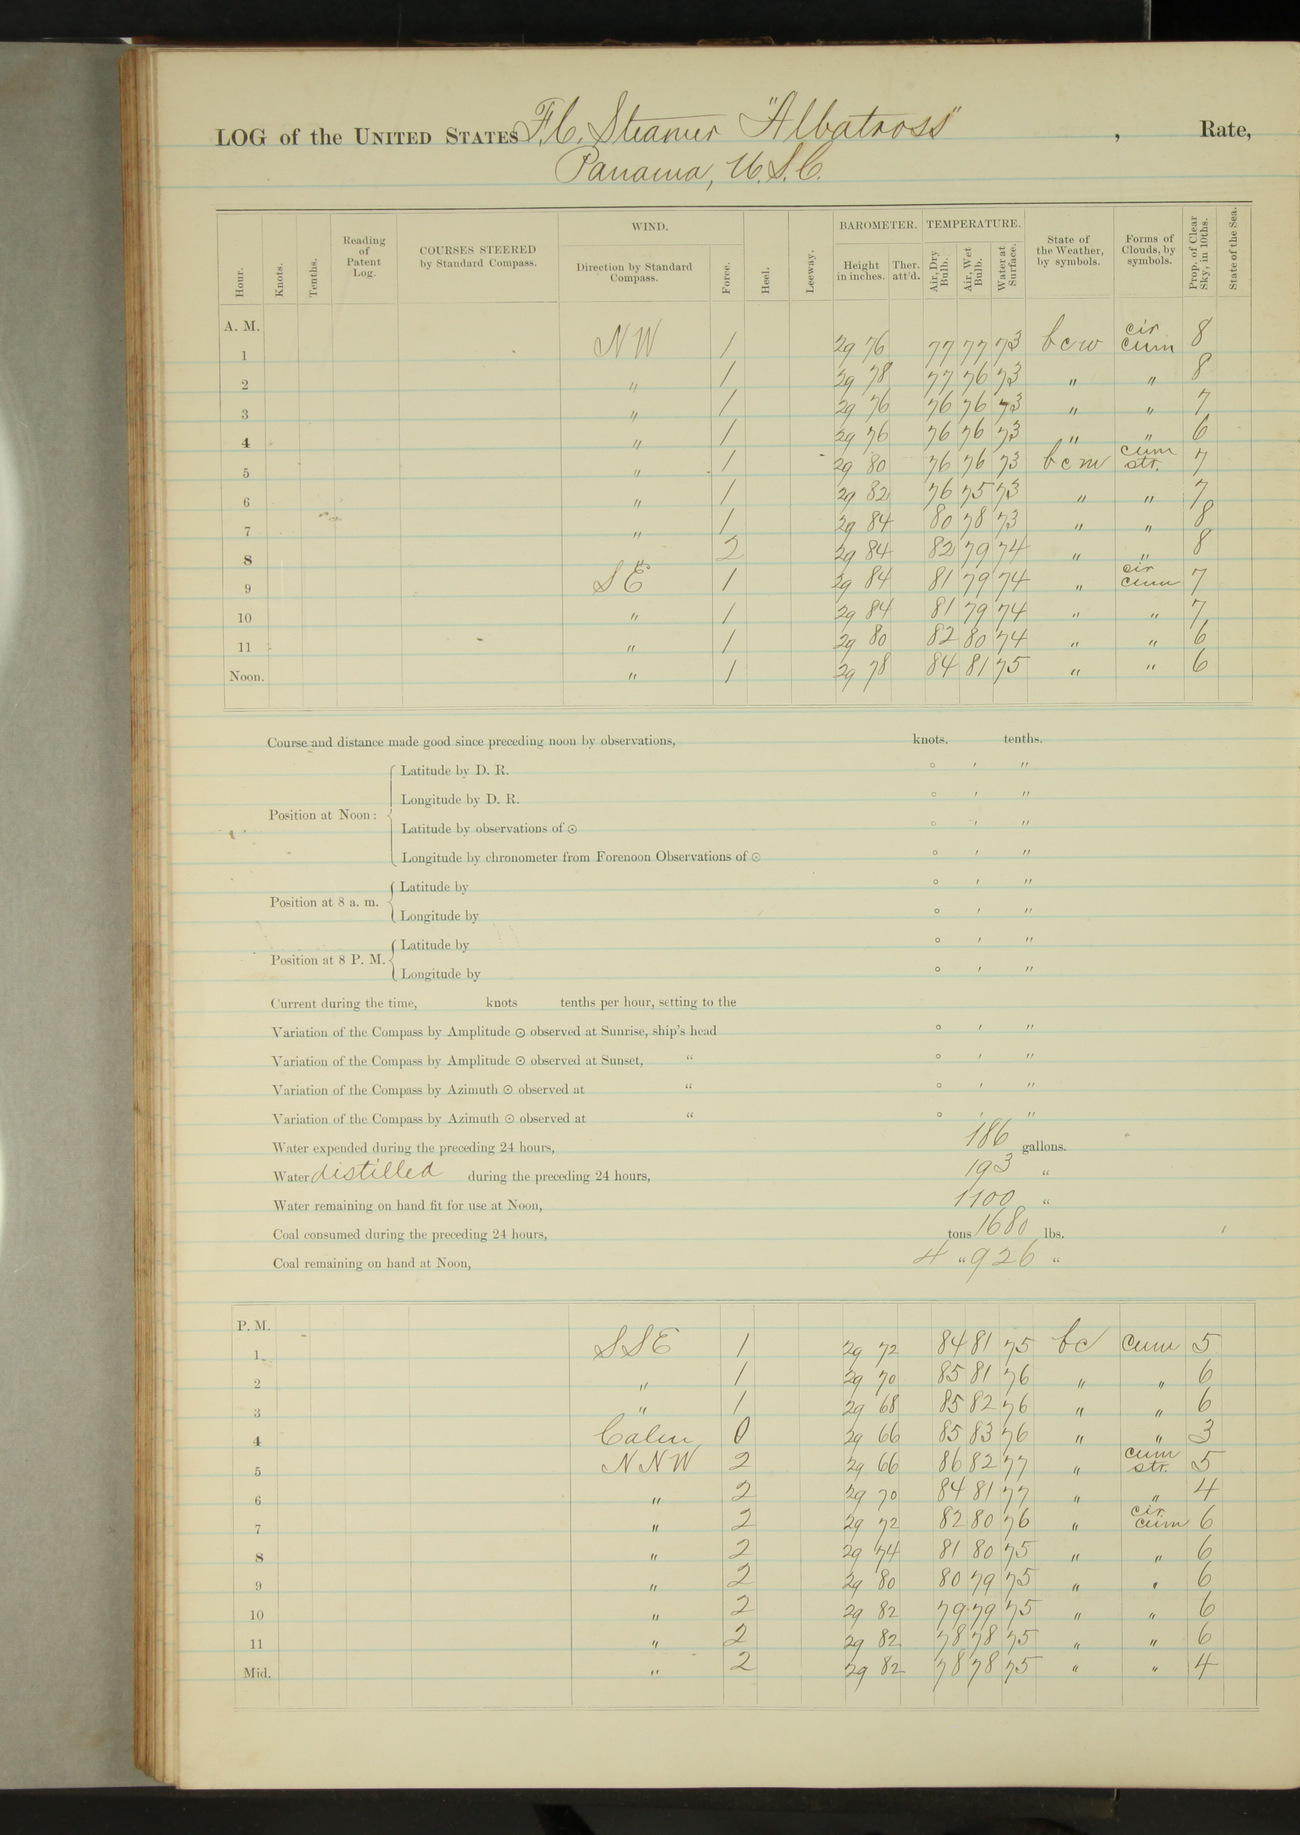 LOG of the UNITED STATES F.C. Steamer "Albatross" , Rate,
Panama, U.S.C.
Hour. Knots. Tenths. Reading of Patent Log. COURSES STEERED by Standard Compass. WIND. Direction by Standard Compass. Force. Heel. Leeway. BAROMETER. Height in inches. Ther. att'd. TEMPERATURE. Air, Dry Bulb. Air, Wet Bulb. Water at Surface. State of the Weather, by symbols. Forms of Clouds, by symbols. Prop. of Clear Sky, in 10ths. State of the Sea.
A. M.
1 NW 1 29 76 77 77 73 bcw cir cum 8
2 " 1 29 78 77 76 73 " " 8
3 " 1 29 76 76 76 73 " " 7
4 " 1 29 76 76 76 73 " " 6
5 " 1 29 80 76 76 73 bcm cum str. 7
6 " 1 29 82 76 75 73 " " 7
7 " 1 29 84 80 78 73 " " 8
8 " 2 29 84 82 79 74 " " 8
9 SE 1 29 84 81 79 74 " cir cum 7
10 " 1 29 84 81 79 74 " " 7
11 " 1 29 80 82 80 74 " " 6
Noon. " 1 29 78 84 81 75 " " 6
Course and distance made good since preceding noon by observations, knots. tenths.
Position at Noon:
Latitude by D. R. ° ′ ″
Longitude by D. R. ° ′ ″
Latitude by observations of ⊙ ° ′ ″
Longitude by chronometer from Forenoon Observations of ⊙ ° ′ ″
Position at 8 a. m.
Latitude by ° ′ ″
Longitude by ° ′ ″
Position at 8 P. M.
Latitude by ° ′ ″
Longitude by ° ′ ″
Current during the time, knots tenths per hour, setting to the
Variation of the Compass by Amplitude ⊙ observed at Sunrise, ship's head ° ′ ″
Variation of the Compass by Amplitude ⊙ observed at Sunset, " ° ′ ″
Variation of the Compass by Azimuth ⊙ observed at " ° ′ ″
Variation of the Compass by Azimuth ⊙ observed at " ° ′ ″
Water expended during the preceding 24 hours, 186 gallons.
Water distilled during the preceding 24 hours, 193 "
Water remaining on hand fit for use at Noon, 1100 "
Coal consumed during the preceding 24 hours, tons 1680 lbs.
Coal remaining on hand at Noon, 4 " 926 "
P. M.
1 SSE 1 29 72 84 81 75 bc cum 5
2 " 1 29 70 85 81 76 " " 6
3 " 1 29 68 85 82 76 " " 6
4 Calm 0 29 66 85 83 76 " " 3
5 NNW 2 29 66 86 82 77 " cum str. 5
6 " 2 29 70 84 81 77 " " 4
7 " 2 29 72 82 80 76 " cir cum 6
8 " 2 29 74 81 80 75 " " 6
9 " 2 29 80 80 79 75 " " 6
10 " 2 29 82 79 79 75 " " 6
11 " 2 29 82 78 78 75 " " 6
Mid. " 2 29 82 78 78 75 " " 4